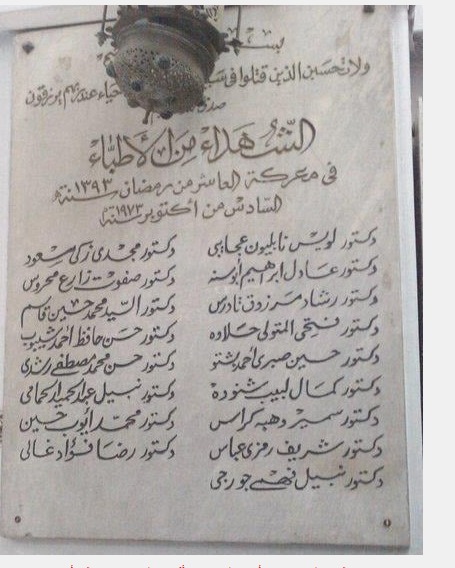 بسـ
ولا تحسبن الذين قتلوا فى سبـ أحياء عند ربهم يرزقون
صدق
الشهداء من الأطباء
فى معركة العاشر من رمضان سنة ١٣٩٣
السادس من أكتوبر سنة ١٩٧٣
دكتور لويس نابليون عجايبى
دكتور عادل ابراهيم
دكتور رشاد مرزوق تادرس
دكتور فتحى المتولى حلاوه
دكتور حسين صبرى احمد
دكتور كمال لبيب شنوده
دكتور سمير وهبه كراس
دكتور شريف رمزى عباس
دكتور نبيل فهمى جورجى
دكتور مجدى زكى سعود
دكتور صفوت زارع محروس
دكتور السيد محمد حسين قاسم
دكتور حسن حافظ احمد شبيوب
دكتور حسن محمد مصطفى رشدى
دكتور نبيل عبد الحميد الحمامى
دكتور محمد ايوب حسين
دكتور رضا فؤاد غالى